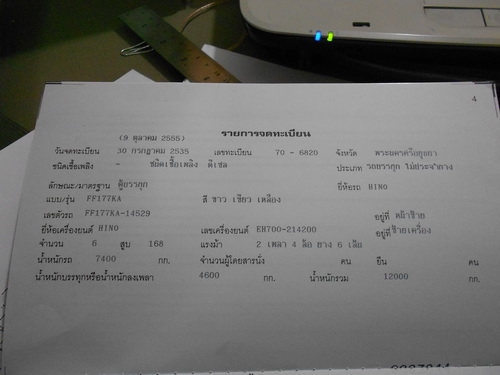 4
รายการจดทะเบียน
(9 ตุลาคม 2555)
วันจดทะเบียน 30 กรกฎาคม 2535 เลขทะเบียน 70 - 6820 จังหวัด พระนครศรีอยุธยา
ชนิดเชื้อเพลิง - ชนิดเชื้อเพลิง ดีเซล ประเภท รถบรรทุก ไม่ประจำทาง
ลักษณะ/มาตรฐาน ตู้บรรทุก ยี่ห้อรถ HINO
แบบ/รุ่น FF177KA สี ขาว เขียว เหลือง
เลขตัวรถ FF177KA-14529 อยู่ที่ หน้าซ้าย
ยี่ห้อเครื่องยนต์ HINO เลขเครื่องยนต์ EH700-214200 อยู่ที่ ซ้ายเครื่อง
จำนวน 6 สูบ 168 แรงม้า 2 เพลา 4 ล้อ ยาง 6 เส้น
น้ำหนักรถ 7400 กก. จำนวนผู้โดยสารนั่ง คน ยืน คน
น้ำหนักบรรทุกหรือน้ำหนักลงเพลา 4600 กก. น้ำหนักรวม 12000 กก.